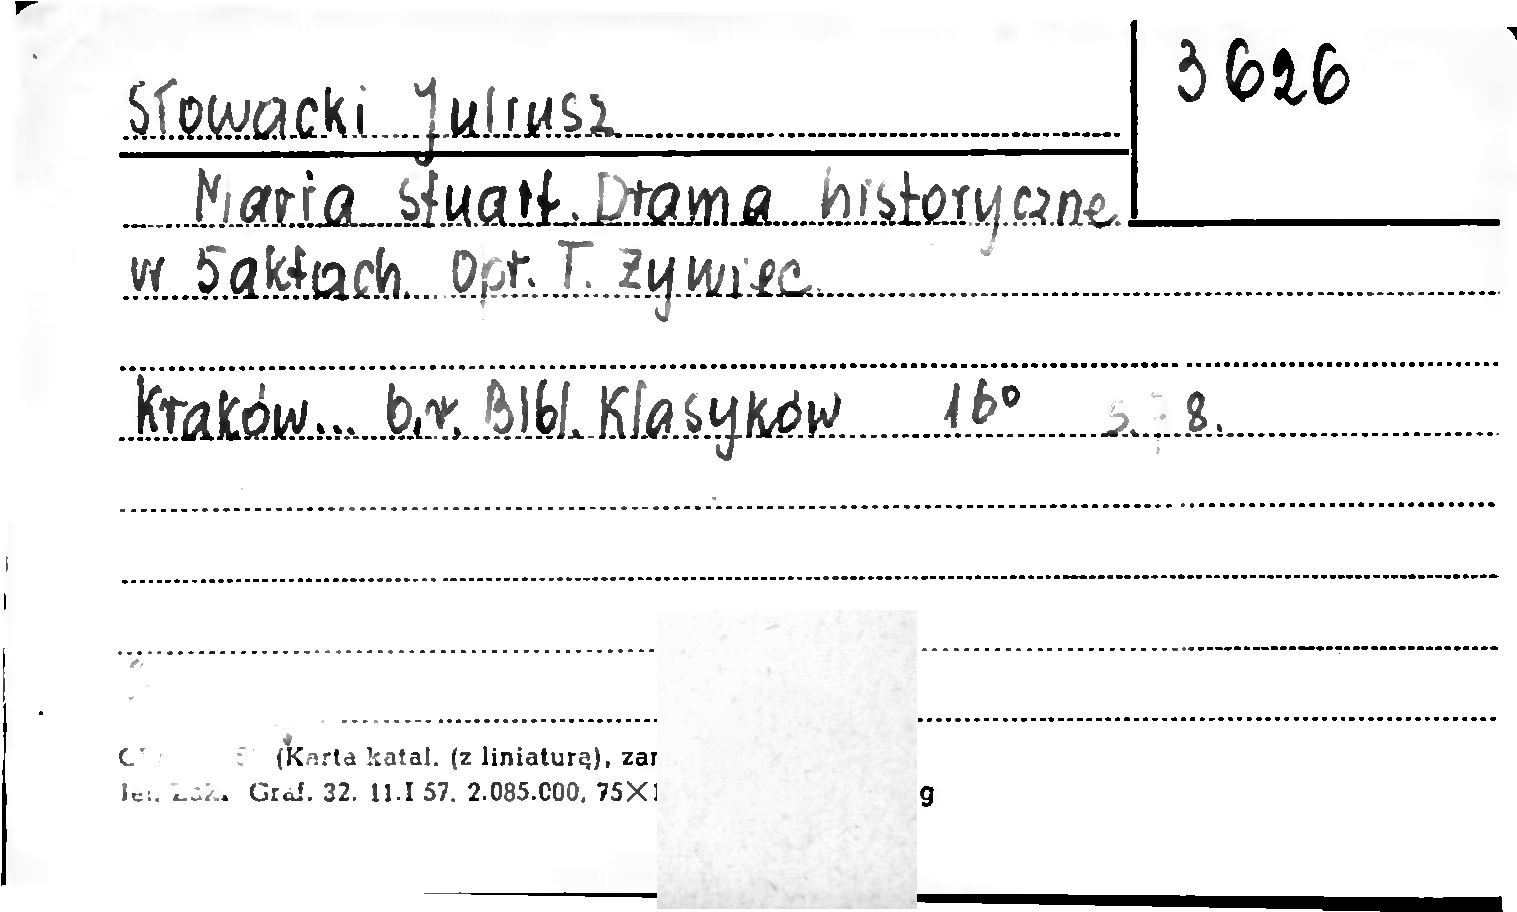 3626
Słowacki Juliusz
Maria Stuart. Drama historyczne
w 5 aktach. Opr. T. Żywiec.
Kraków... b.r. Bibl. Klasyków 16° s. 8.
(Karta katal. (z liniaturą),
Graf. 32. 11.I 57. 2.085.000,